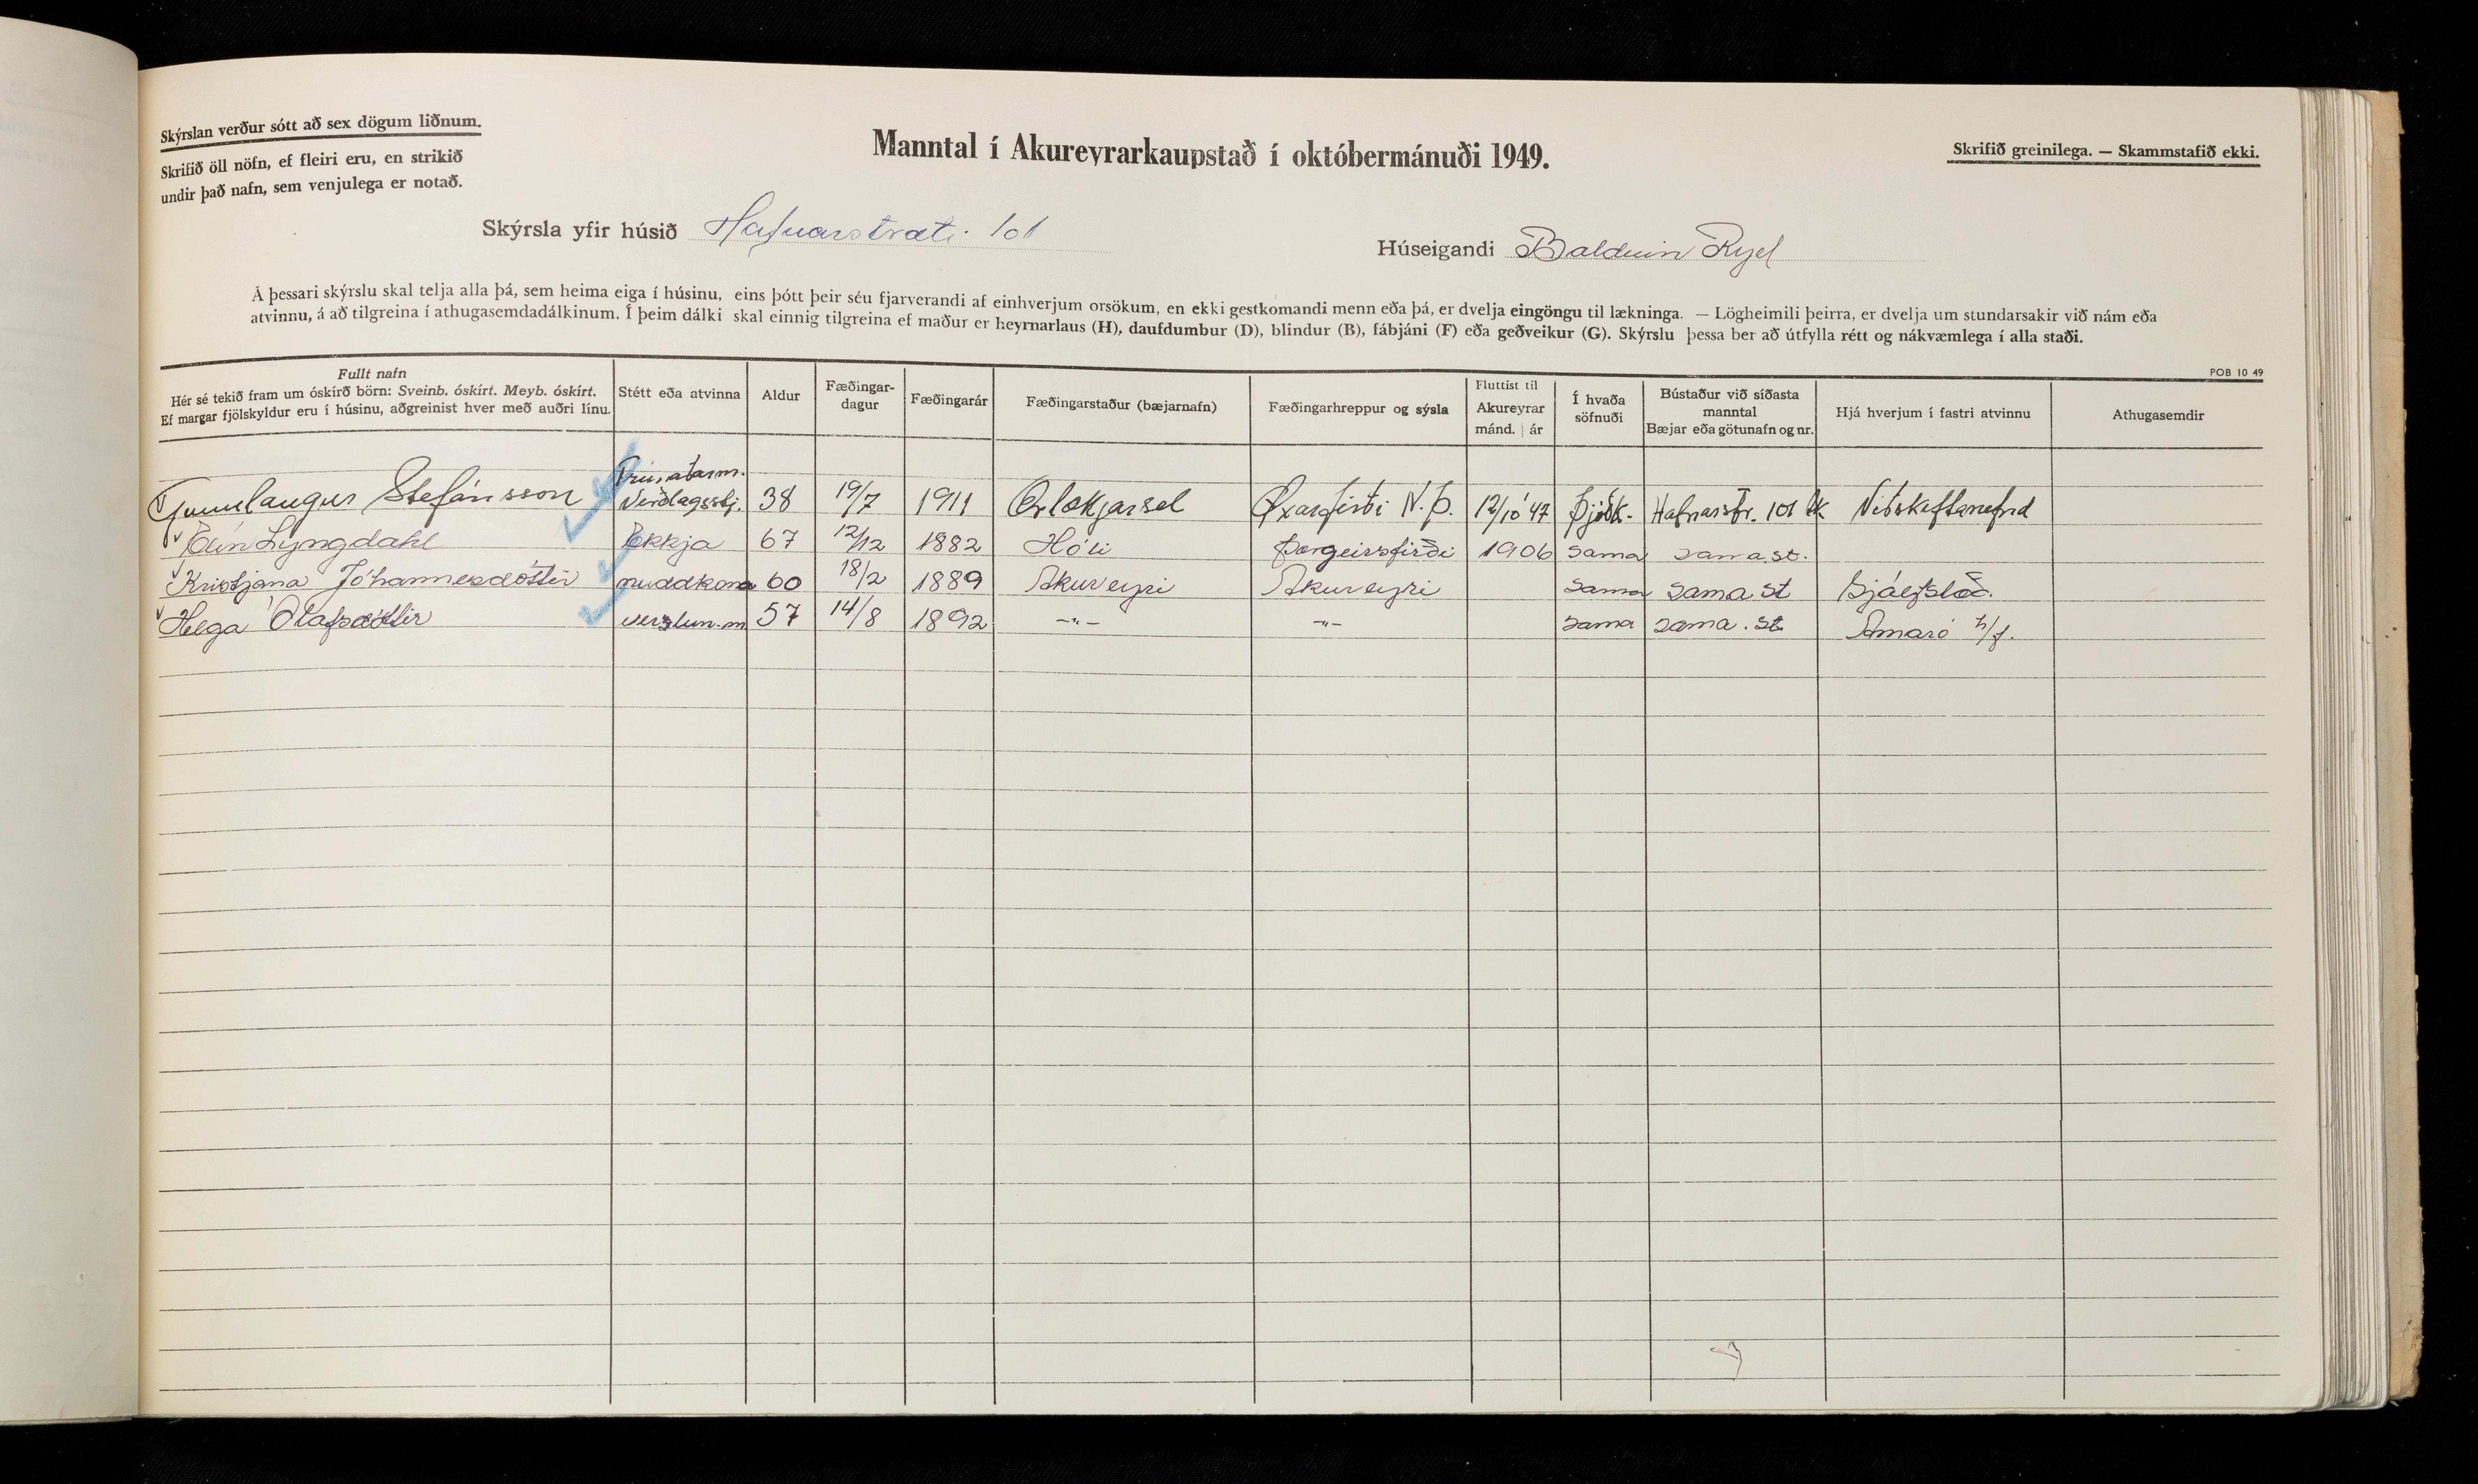 Skýrslan verður sótt að sex dögum liðnum.
Skrifið öll nöfn, ef fleiri eru, en strikið
undir það nafn, sem venjulega er notað.
Manntal í Akureyrarkaupstað í októbermánuði 1949.
Skrifið greinilega. — Skammstafið ekki.
Skýrsla yfir húsið Hafnarstræti 101
Húseigandi Balduin Ryel
Á þessari skýrslu skal telja alla þá, sem heima eiga í húsinu, eins þótt þeir séu fjarverandi af einhverjum orsökum, en ekki gestkomandi menn eða þá, er dvelja eingöngu til lækninga. — Lögheimili þeirra, er dvelja um stundarsakir við nám eða
atvinnu, á að tilgreina í athugasemdadálkinum. Í þeim dálki skal einnig tilgreina ef maður er heyrnarlaus (H), daufdumbur (D), blindur (B), fábjáni (F) eða geðveikur (G). Skýrslu þessa ber að útfylla rétt og nákvæmlega í alla staði.
POB 10 49
Fullt nafn
Hér sé tekið fram um óskírð börn: Sveinb. óskírt. Meyb. óskírt.
Ef margar fjölskyldur eru í húsinu, aðgreinist hver með auðri línu.
Stétt eða atvinna
Aldur
Fæðingar-
dagur
Fæðingarár
Fæðingarstaður (bæjarnafn)
Fæðingarhreppur og sýsla
Fluttist til
Akureyrar
mánd. | ár
Í hvaða
söfnuði
Bústaður við síðasta
manntal
Bæjar eða götunafn og nr.
Hjá hverjum í fastri atvinnu
Athugasemdir
Gunnlaugur Stefánsson Verðlagsstj. 38 19/7 1911 Ærlækjarsel Öxarfirði N.Þ. 12/10 '47 Þjóðk. Hafnarstr. 101 Ak Viðskiftanefnd
Elín Lyngdahl Ekkja 67 12/12 1882 Hóli Þorgeirsfirði 1906 sama sama st.
Kristjana Jóhannesdóttir nuddkona 60 18/2 1889 Akureyri Akureyri sama sama st Sjálfstæð.
Helga Ólafsdóttir verzlun.m 57 14/8 1892 –"– –"– sama sama. st Amaró h/f.